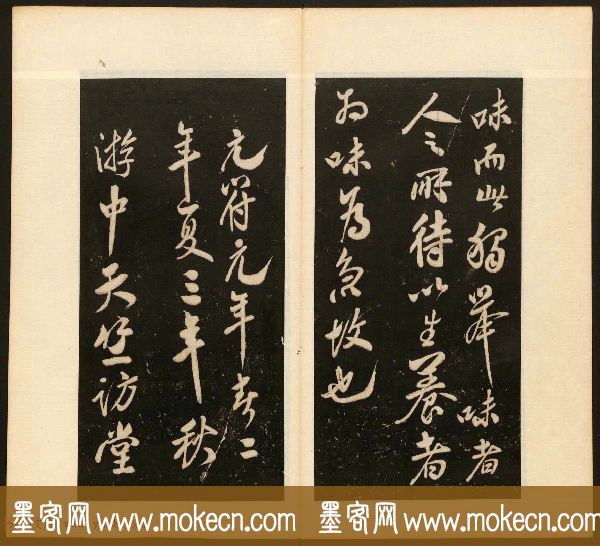 味而此獨舉味者
人之所待以生養者
味為急故也
元符元年春二
年夏三年秋
游中天竺訪堂
墨客网 www.mokecn.com 墨客网 www.mokecn.com